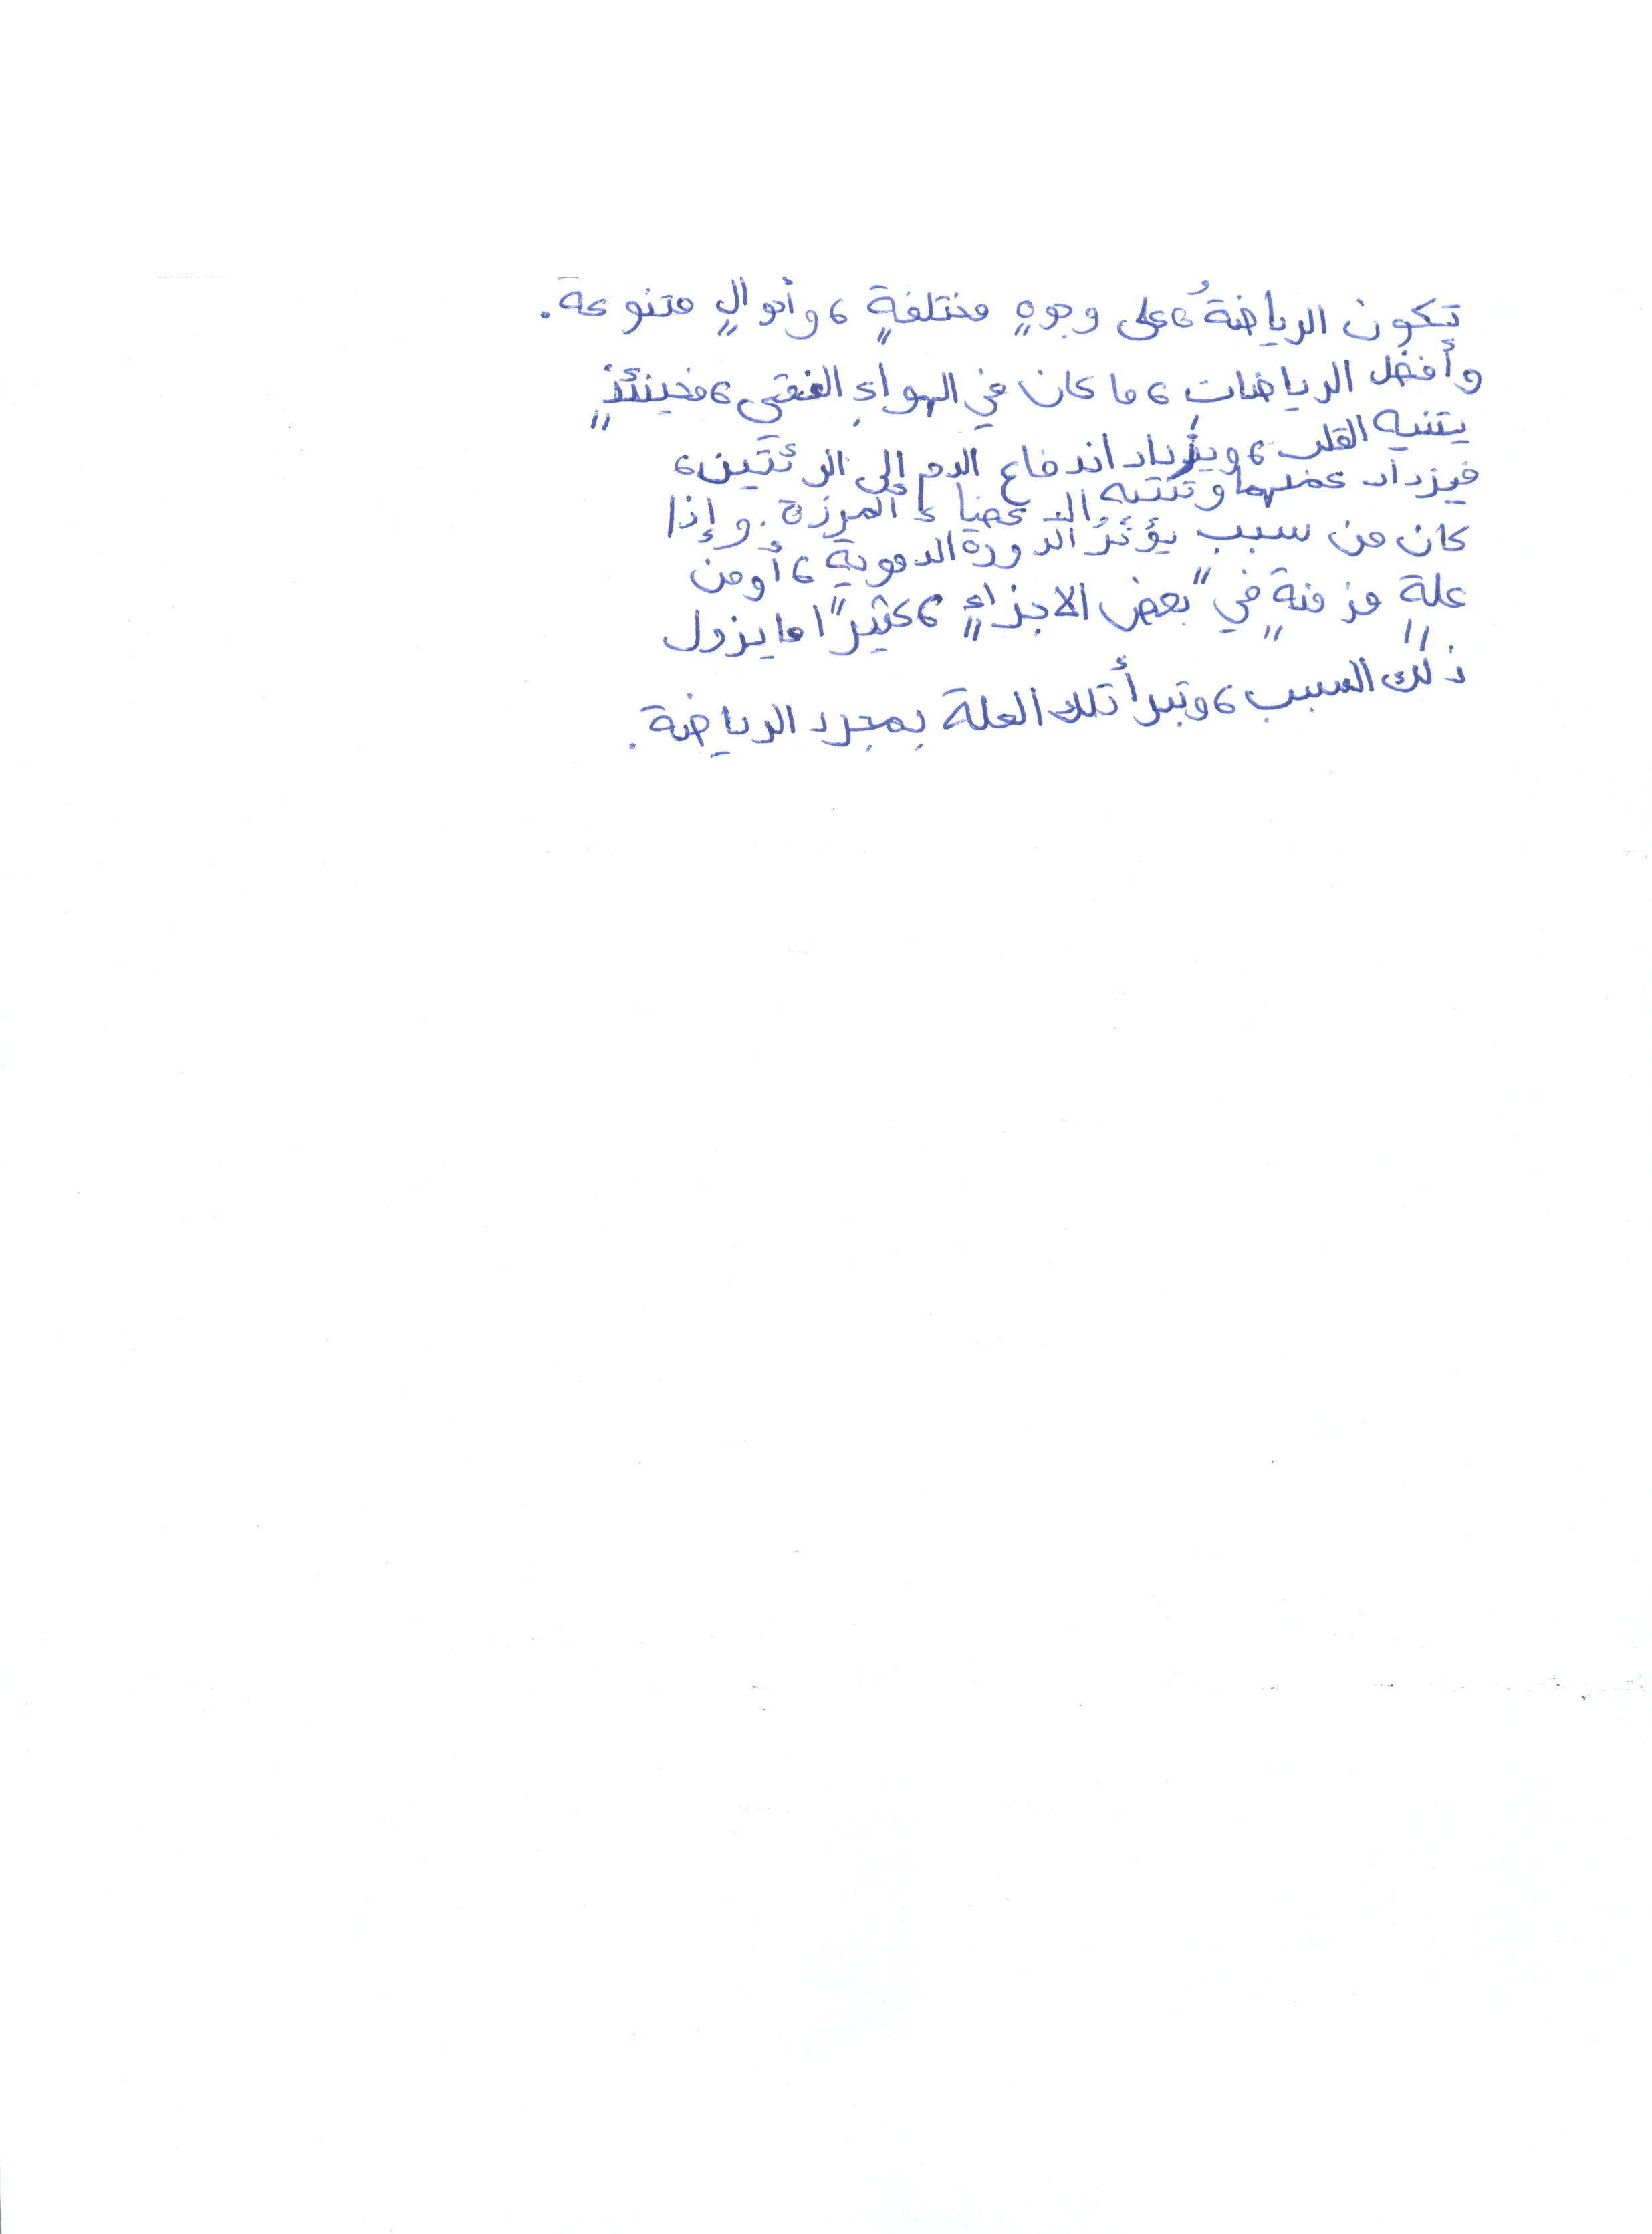 تكون الرياضةُ، على وجوهٍ مختلفةٍ، وأحوالٍ متنوعة.
وأفضل الرياضات، ما كان في الهواءِ النقي، فحينئذٍ
يتنبه القلب، ويزداد اندفاع الدم إلى الرئتين،
فيزداد عملهما وتتنبه الأعضاء المفرزة. وإذا
كان من سبب يؤثرُ الدورة الدموية، أو من
علةٍ مزمنةٍ في بعض الاجزاءٍ، كثيرًا ما يزول
ذلك السبب، وتبرأ تلك العلة بمجرد الرياضة.